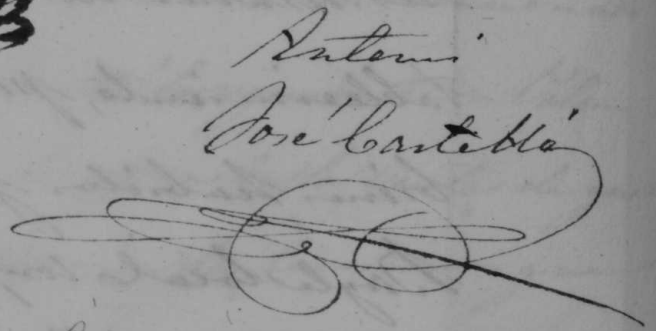 Antoni
José Castellá